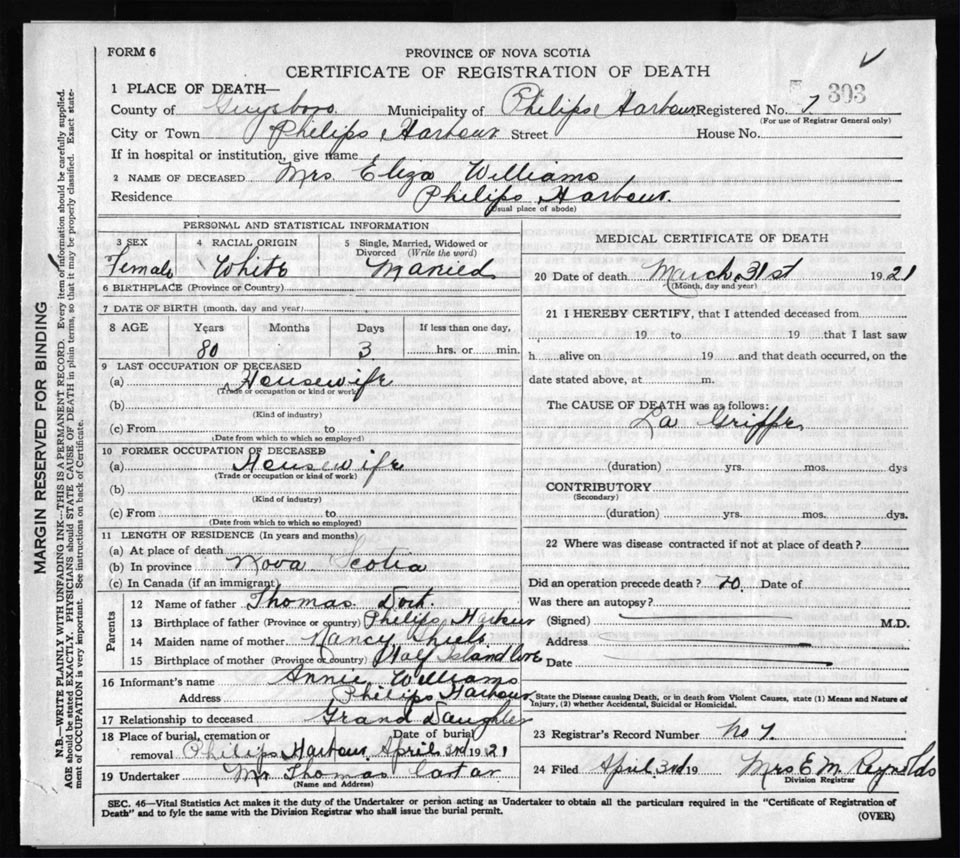 FORM 6
PROVINCE OF NOVA SCOTIA
CERTIFICATE OF REGISTRATION OF DEATH
303
1 PLACE OF DEATH—
County of Guysboro Municipality of Philips Harbour Registered No. 7
(For use of Registrar General only)
City or Town Philips Harbour Street House No.
If in hospital or institution, give name
2 NAME OF DECEASED Mrs Eliza Williams
Residence Philips Harbour.
(Usual place of abode)
PERSONAL AND STATISTICAL INFORMATION
3 SEX 4 RACIAL ORIGIN 5 Single, Married, Widowed or Divorced (Write the word)
Female White Married
6 BIRTHPLACE (Province or Country)
7 DATE OF BIRTH (month, day and year)
8 AGE Years Months Days If less than one day,
80 3 hrs. or min.
9 LAST OCCUPATION OF DECEASED
(a) Housewife
(Trade or occupation or kind of work)
(b)
(Kind of industry)
(c) From to
(Date from which to which so employed)
10 FORMER OCCUPATION OF DECEASED
(a) Housewife
(Trade or occupation or kind of work)
(b)
(Kind of industry)
(c) From to
(Date from which to which so employed)
11 LENGTH OF RESIDENCE (In years and months)
(a) At place of death
(b) In province Nova Scotia
(c) In Canada (if an immigrant)
Parents
12 Name of father Thomas Dort.
13 Birthplace of father (Province or country) Philips Harbour
14 Maiden name of mother Nancy
15 Birthplace of mother (Province or country) Half Island Cove
16 Informant's name Annie Williams
Address Philips Harbour
17 Relationship to deceased Grand Daughter
18 Place of burial, cremation or removal Philips Harbour Date of burial April 3rd 1921
19 Undertaker Mr Thomas
(Name and Address)
MEDICAL CERTIFICATE OF DEATH
20 Date of death March 31st 1921
(Month, day and year)
21 I HEREBY CERTIFY, that I attended deceased from
19 to 19 that I last saw
h alive on 19 and that death occurred, on the
date stated above, at m.
The CAUSE OF DEATH was as follows:
La Grippe
(duration) yrs. mos. dys
CONTRIBUTORY
(Secondary)
(duration) yrs. mos. dys.
22 Where was disease contracted if not at place of death?
Did an operation precede death? no. Date of
Was there an autopsy?
(Signed) M.D.
Address
Date
State the Disease causing Death, or in death from Violent Causes, state (1) Means and Nature of
Injury, (2) whether Accidental, Suicidal or Homicidal.
23 Registrar's Record Number No 7.
24 Filed April 3rd 19 Mrs E. M. Reynolds
Division Registrar
SEC. 46—Vital Statistics Act makes it the duty of the Undertaker or person acting as Undertaker to obtain all the particulars required in the "Certificate of Registration of
Death" and to fyle the same with the Division Registrar who shall issue the burial permit.
(OVER)
MARGIN RESERVED FOR BINDING
N.B.—WRITE PLAINLY WITH UNFADING INK—THIS IS A PERMANENT RECORD. Every item of information should be carefully supplied.
AGE should be stated EXACTLY. PHYSICIANS should STATE CAUSE OF DEATH in plain terms, so that it may be properly classified. Exact state-
ment of OCCUPATION is very important. See instructions on back of Certificate.